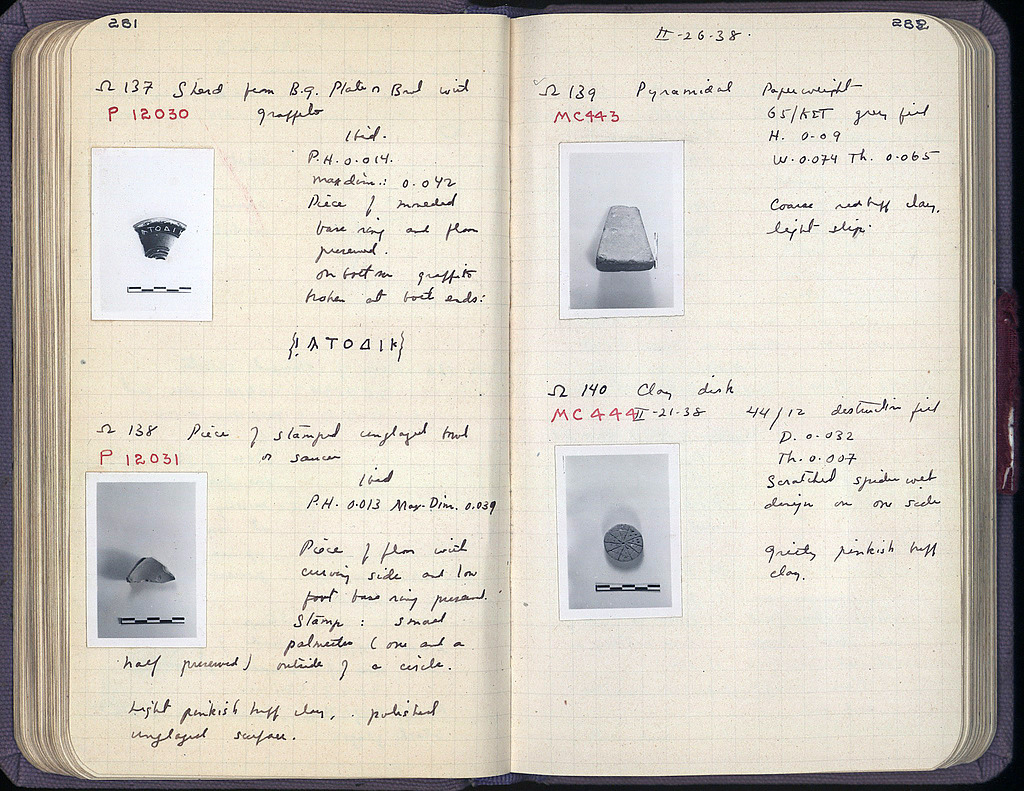 281
Ω 137 Sherd from B.g. Plate or Bowl with
P 12030 graffito
Ibid.
P.H. 0.014.
max dim.: 0.042
Piece of moulded
base ring and floor
preserved.
on bottom graffito
broken at both ends:
{! Λ Τ Ο Δ Ι Κ}
Ω 138 Piece of stamped unglazed bowl
P 12031 or saucer
Ibid
P.H. 0.013 Max. Dim. 0.039
Piece of floor with
curving side and low
foot base ring present.
Stamp: small
palmettes (one and a
half preserved) outside of a circle.
Light pinkish buff clay, polished
unglazed surface.
282
II-26-38.
Ω 139 Pyramidal Paperweight
MC443 65/ΚΣΤ grey fill
H. 0.09
W. 0.074 Th. 0.065
Coarse red buff clay,
light slip.
Ω 140 Clay disk
MC 444 II-21-38 44/12 destruction fill
D. 0.032
Th. 0.007
Scratched spider web
design on one side
gritty pinkish buff
clay.